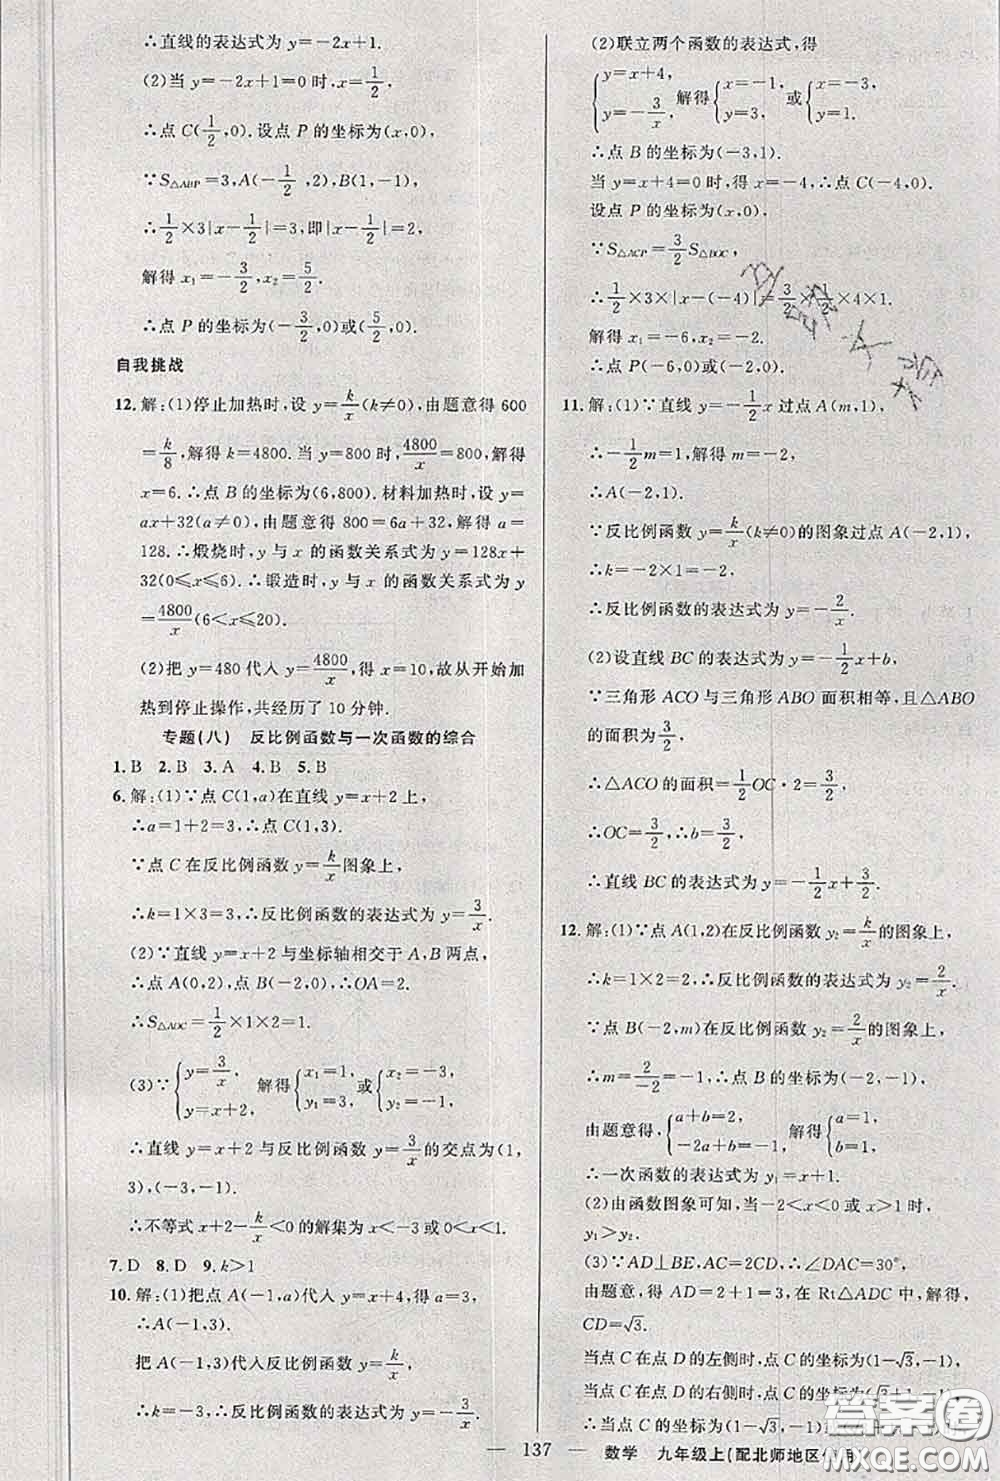 ∴直线的表达式为 y=-2x+1.
(2)当 y=-2x+1=0 时,x=1/2,
∴点 C(1/2,0).设点 P 的坐标为(x,0),
∵S△ABP=3,A(-1/2,2),B(1,-1),
∴1/2×3|x-1/2|=3,即|x-1/2|=2,
解得 x₁=-3/2,x₂=5/2.
∴点 P 的坐标为(-3/2,0)或(5/2,0).
自我挑战
12.解:(1)停止加热时,设 y=k/x(k≠0),由题意得 600
=k/8,解得 k=4800.当 y=800 时,4800/x=800,解得
x=6.∴点 B 的坐标为(6,800).材料加热时,设 y=
ax+32(a≠0),由题意得 800=6a+32,解得 a=
128.∴煅烧时,y 与 x 的函数关系式为 y=128x+
32(0≤x≤6).∴锻造时,y 与 x 的函数关系式为 y
=4800/x(6<x≤20).
(2)把 y=480 代入 y=4800/x,得 x=10,故从开始加
热到停止操作,共经历了 10 分钟.
专题(八) 反比例函数与一次函数的综合
1.B 2.B 3.A 4.B 5.B
6.解:(1)∵点 C(1,a)在直线 y=x+2 上,
∴a=1+2=3,∴点 C(1,3).
∵点 C 在反比例函数 y=k/x图象上,
∴k=1×3=3,∴反比例函数的表达式为 y=3/x.
(2)∵直线 y=x+2 与坐标轴相交于 A,B 两点,
∴点 A(0,2),点 B(-2,0),∴OA=2.
∴S△AOC=1/2×1×2=1.
(3)∵{y=3/x, y=x+2, 解得{x₁=1, y₁=3, 或{x₂=-3, y₂=-1,
∴直线 y=x+2 与反比例函数 y=3/x的交点为(1,
3),(-3,-1).
∴不等式 x+2-k/x<0 的解集为x<-3 或0<x<1.
7.D 8.D 9.k>1
10.解:(1)把点 A(-1,a)代入 y=x+4,得 a=3,
∴A(-1,3).
把 A(-1,3)代入反比例函数 y=k/x,得 k=-3,
∴反比例函数的表达式为 y=-3/x.
(2)联立两个函数的表达式,得
{y=x+4, y=-3/x, 解得{x=-1, y=3, 或{x=-3, y=1.
∴点 B 的坐标为(-3,1).
当 y=x+4=0时,得 x=-4,∴点 C(-4,0).
设点 P 的坐标为(x,0),
∵S△ACP=3/2S△BOC,
∴1/2×3×|x-(-4)|=3/2×1/2×4×1.
解得 x₁=-6,x₂=-2.
∴点 P(-6,0)或(-2,0).
11.解:(1)∵直线 y=-1/2x 过点 A(m,1),
∴-1/2m=1,解得 m=-2,
∴A(-2,1).
∵反比例函数 y=k/x(k≠0)的图象过点 A(-2,1),
∴k=-2×1=-2,
∴反比例函数的表达式为 y=-2/x.
(2)设直线 BC 的表达式为 y=-1/2x+b,
∵三角形 ACO 与三角形 ABO 面积相等,且△ABO
的面积为3/2,
∴△ACO 的面积=1/2OC·2=3/2,
∴OC=3/2,∴b=3/2,
∴直线 BC 的表达式为 y=-1/2x+3/2.
12.解:(1)∵点 A(1,2)在反比例函数 y₂=k/x的图象上,
∴k=1×2=2,∴反比例函数的表达式为 y₂=2/x.
∵点 B(-2,m)在反比例函数 y₂=2/x的图象上,
∴m=2/-2=-1,∴点 B 的坐标为(-2,-1).
由题意得,{a+b=2, -2a+b=-1, 解得{a=1, b=1.
∴一次函数的表达式为 y₁=x+1.
(2)由函数图象可知,当-2<x<0 或 x>1 时,
y₁>y₂.
(3)∵AD⊥BE,AC=2CD,∴∠DAC=30°.
由题意,得 AD=2+1=3,在 Rt△ADC 中,解得
CD=√3.
当点 C 在点 D 的左侧时,点 C 的坐标为(1-√3,-1),
当点 C 在点 D 的右侧时,点 C 的坐标为(√3+1,-1),
∴当点 C 的坐标为(1-√3,-1)或
137
数学 九年级上(配北师地区
答案圈
MXQE.COM